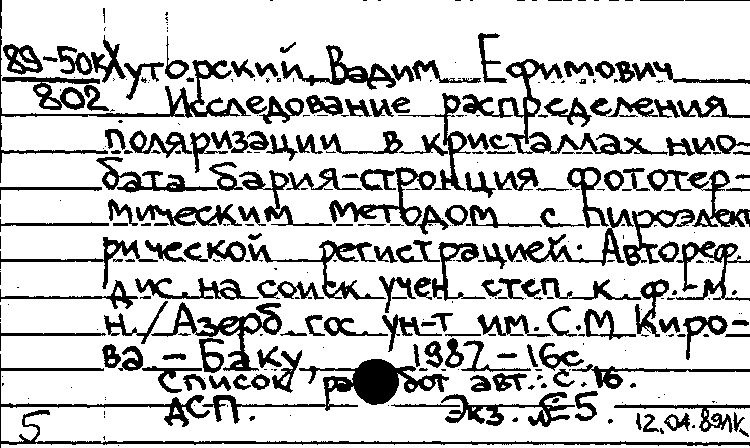 89-50к Хуторский, Вадим Ефимович
802 Исследование распределения
поляризации в кристаллах нио-
бата бария-стронция фототер-
мическим методом с пироэлект
рической регистрацией: Автореф.
дис. на соиск. учен. степ. к. ф.-м.
н. / Азерб. гос. ун-т им. С.М Киро-
ва. - Баку, 1987. - 16с.
Список работ авт.: с. 16.
ДСП. Экз. №5.
5 12.04.89